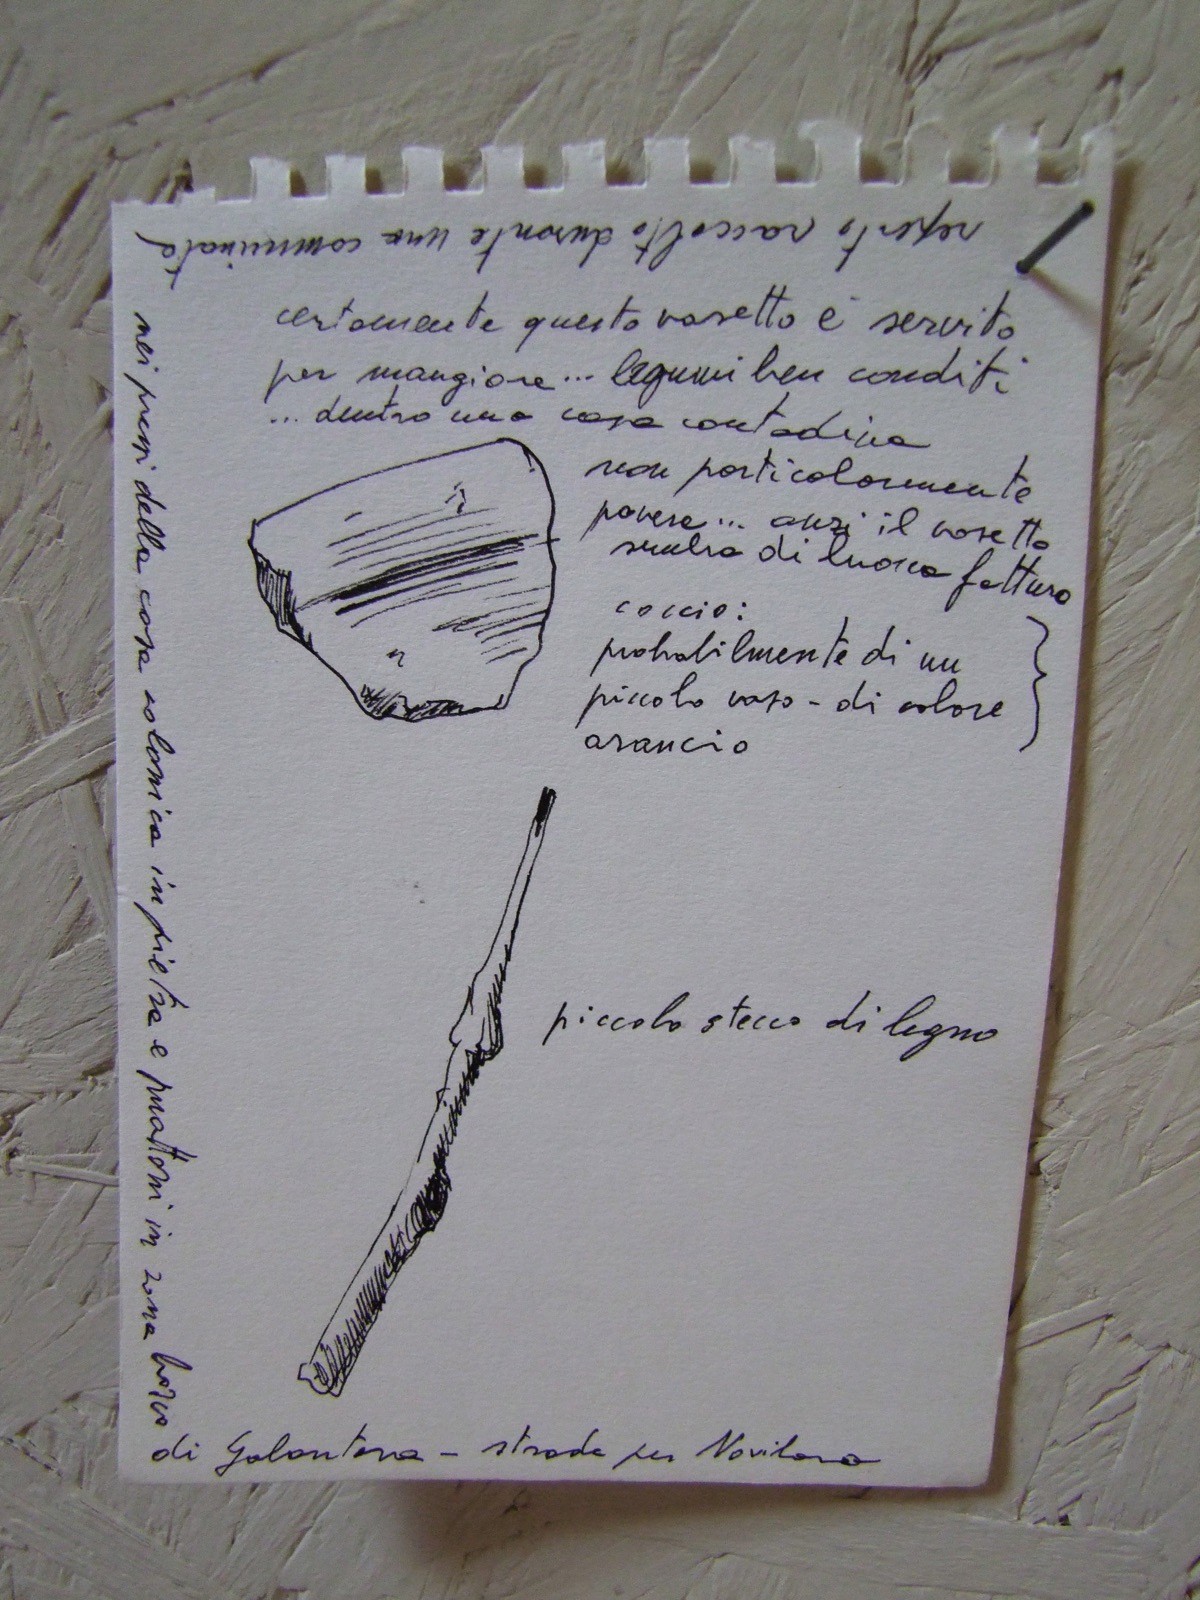 reperto raccolto durante una camminata
nei pressi della casa colonica in pietra e mattoni in zona
di Galantara - strada per Novilara
certamente questo vasetto è servito
per mangiare... legumi ben conditi
... dentro una casa contadina
non particolarmente
povera... anzi il vasetto
sembra di buona fattura
coccio:
probabilmente di un
piccolo vaso - di colore
arancio
piccolo stecco di legno